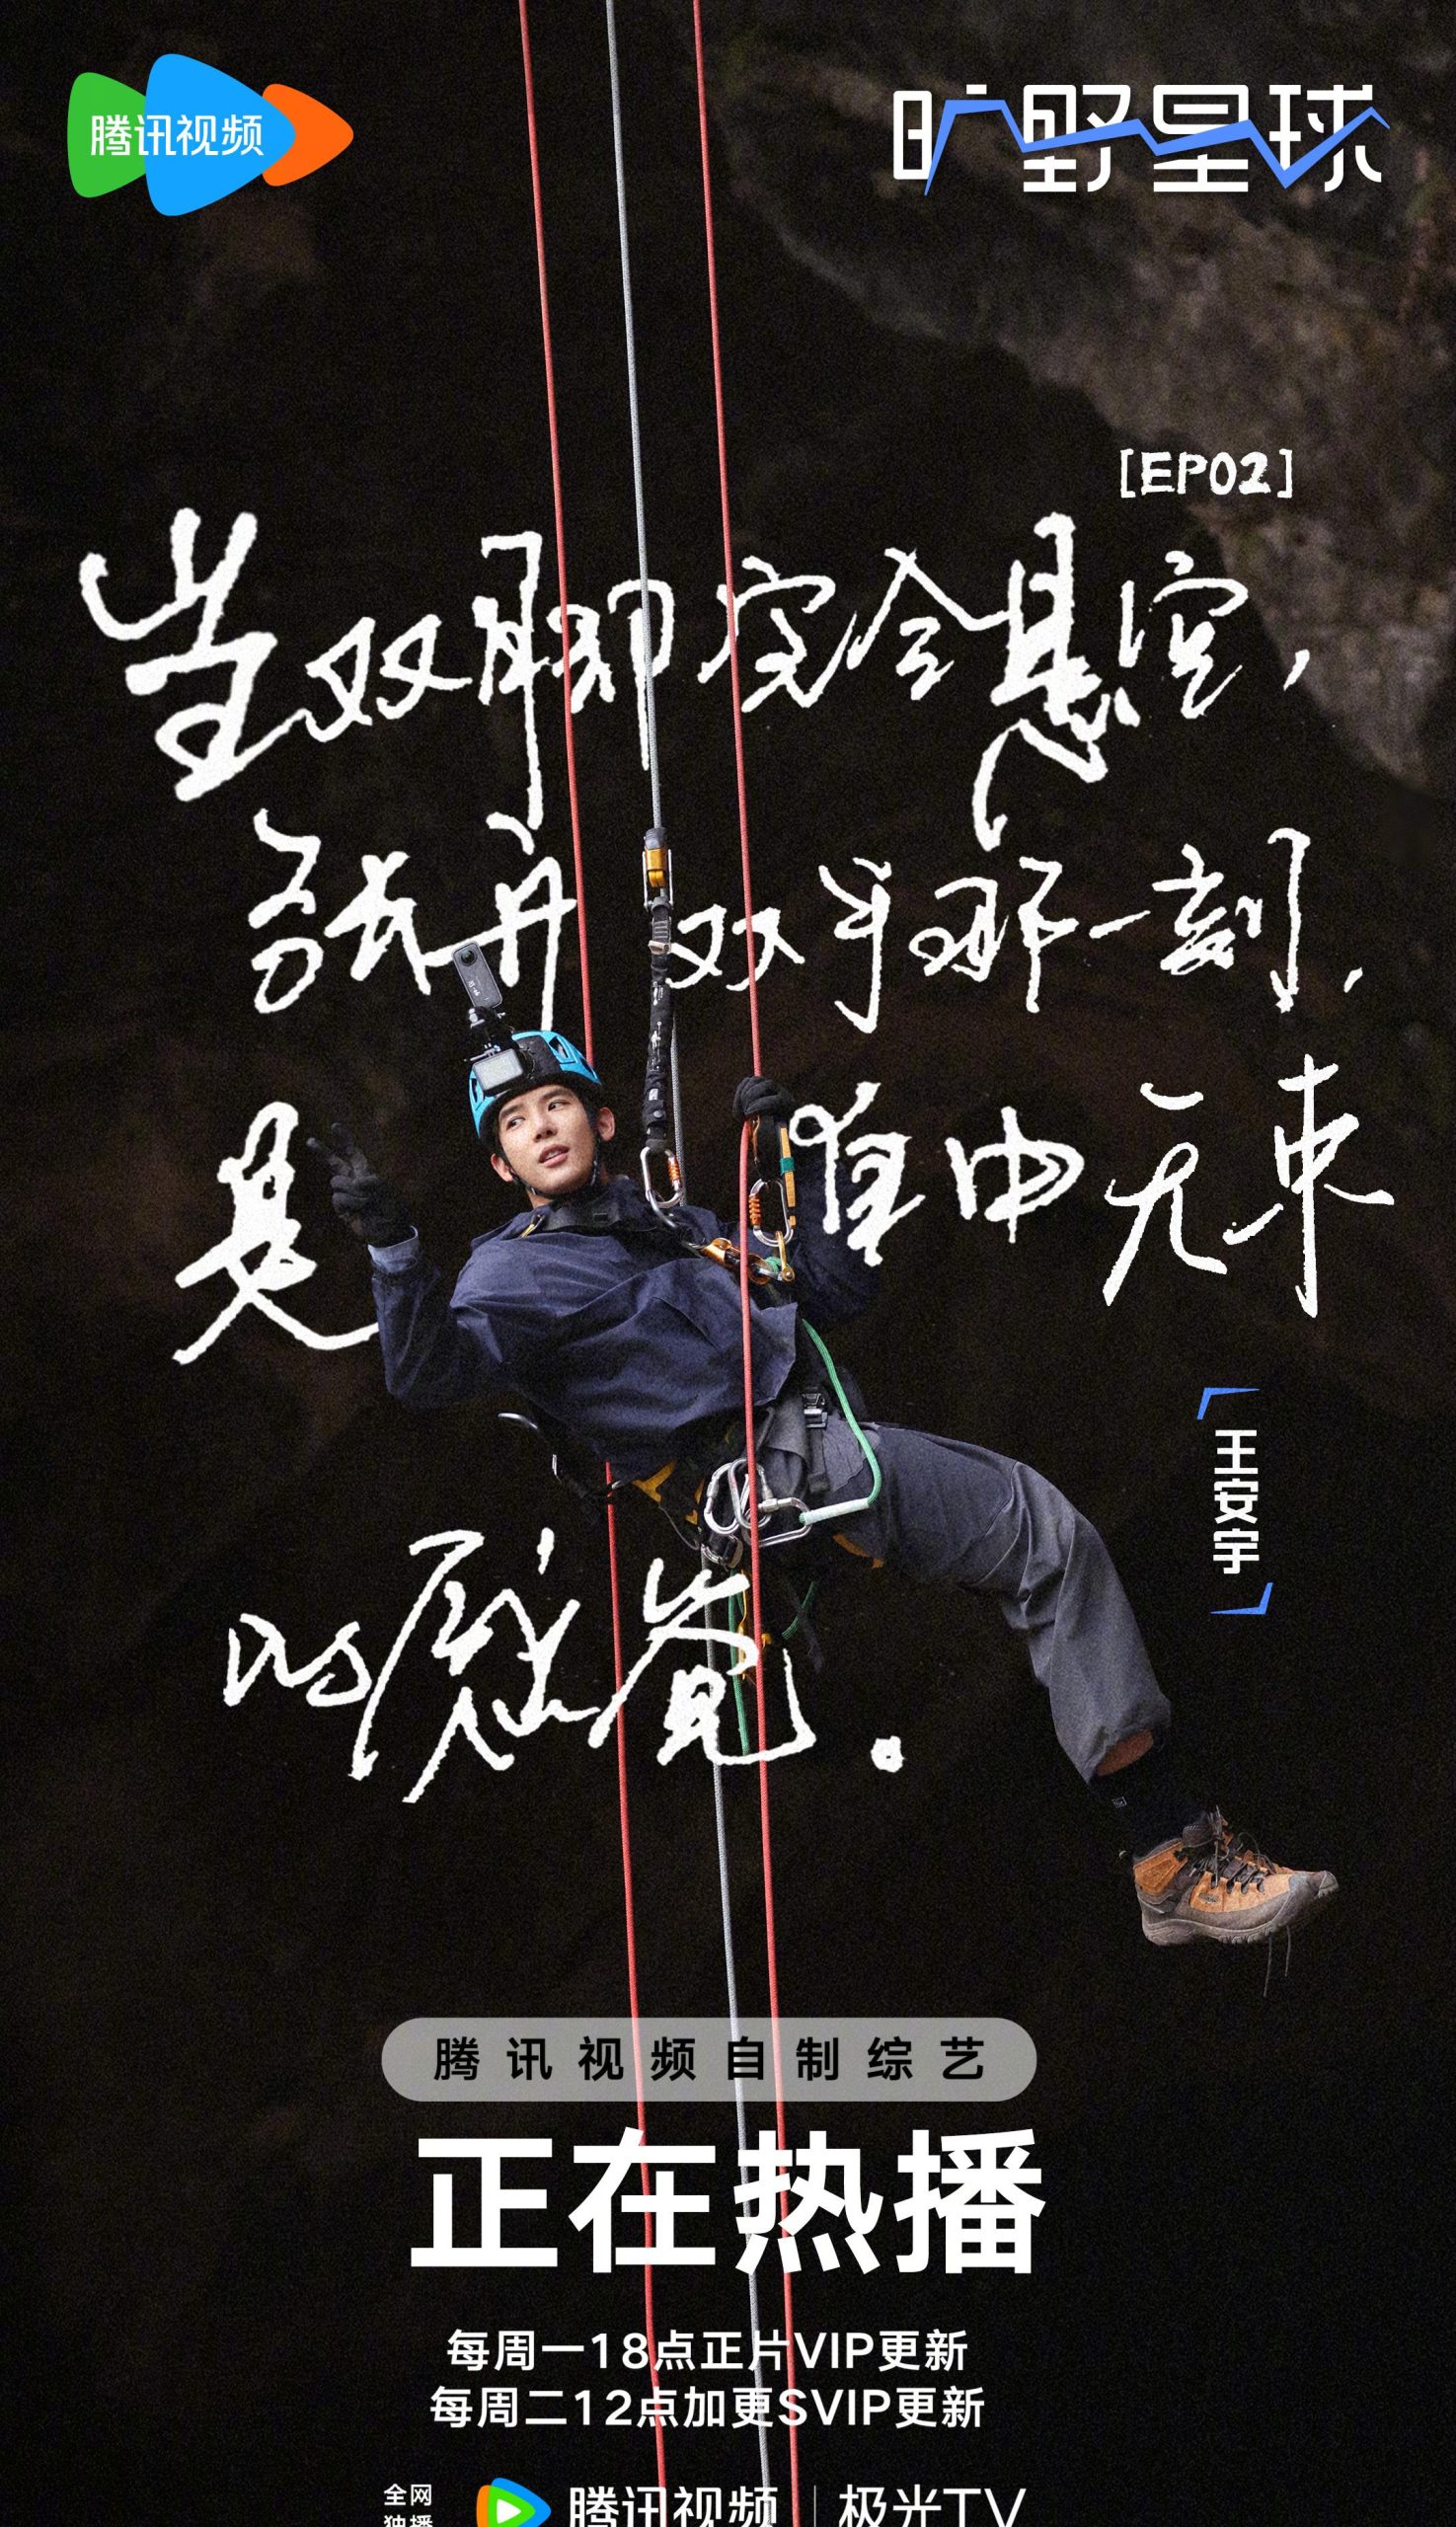 腾讯视频
旷野星球
[EP02]
当双脚完全悬空，
张开双手那一刻，
是自由无束
的感觉.
王安宇
腾讯视频自制综艺
正在热播
每周一18点正片VIP更新
每周二12点加更SVIP更新
全网
独播
腾讯视频 | 极光TV